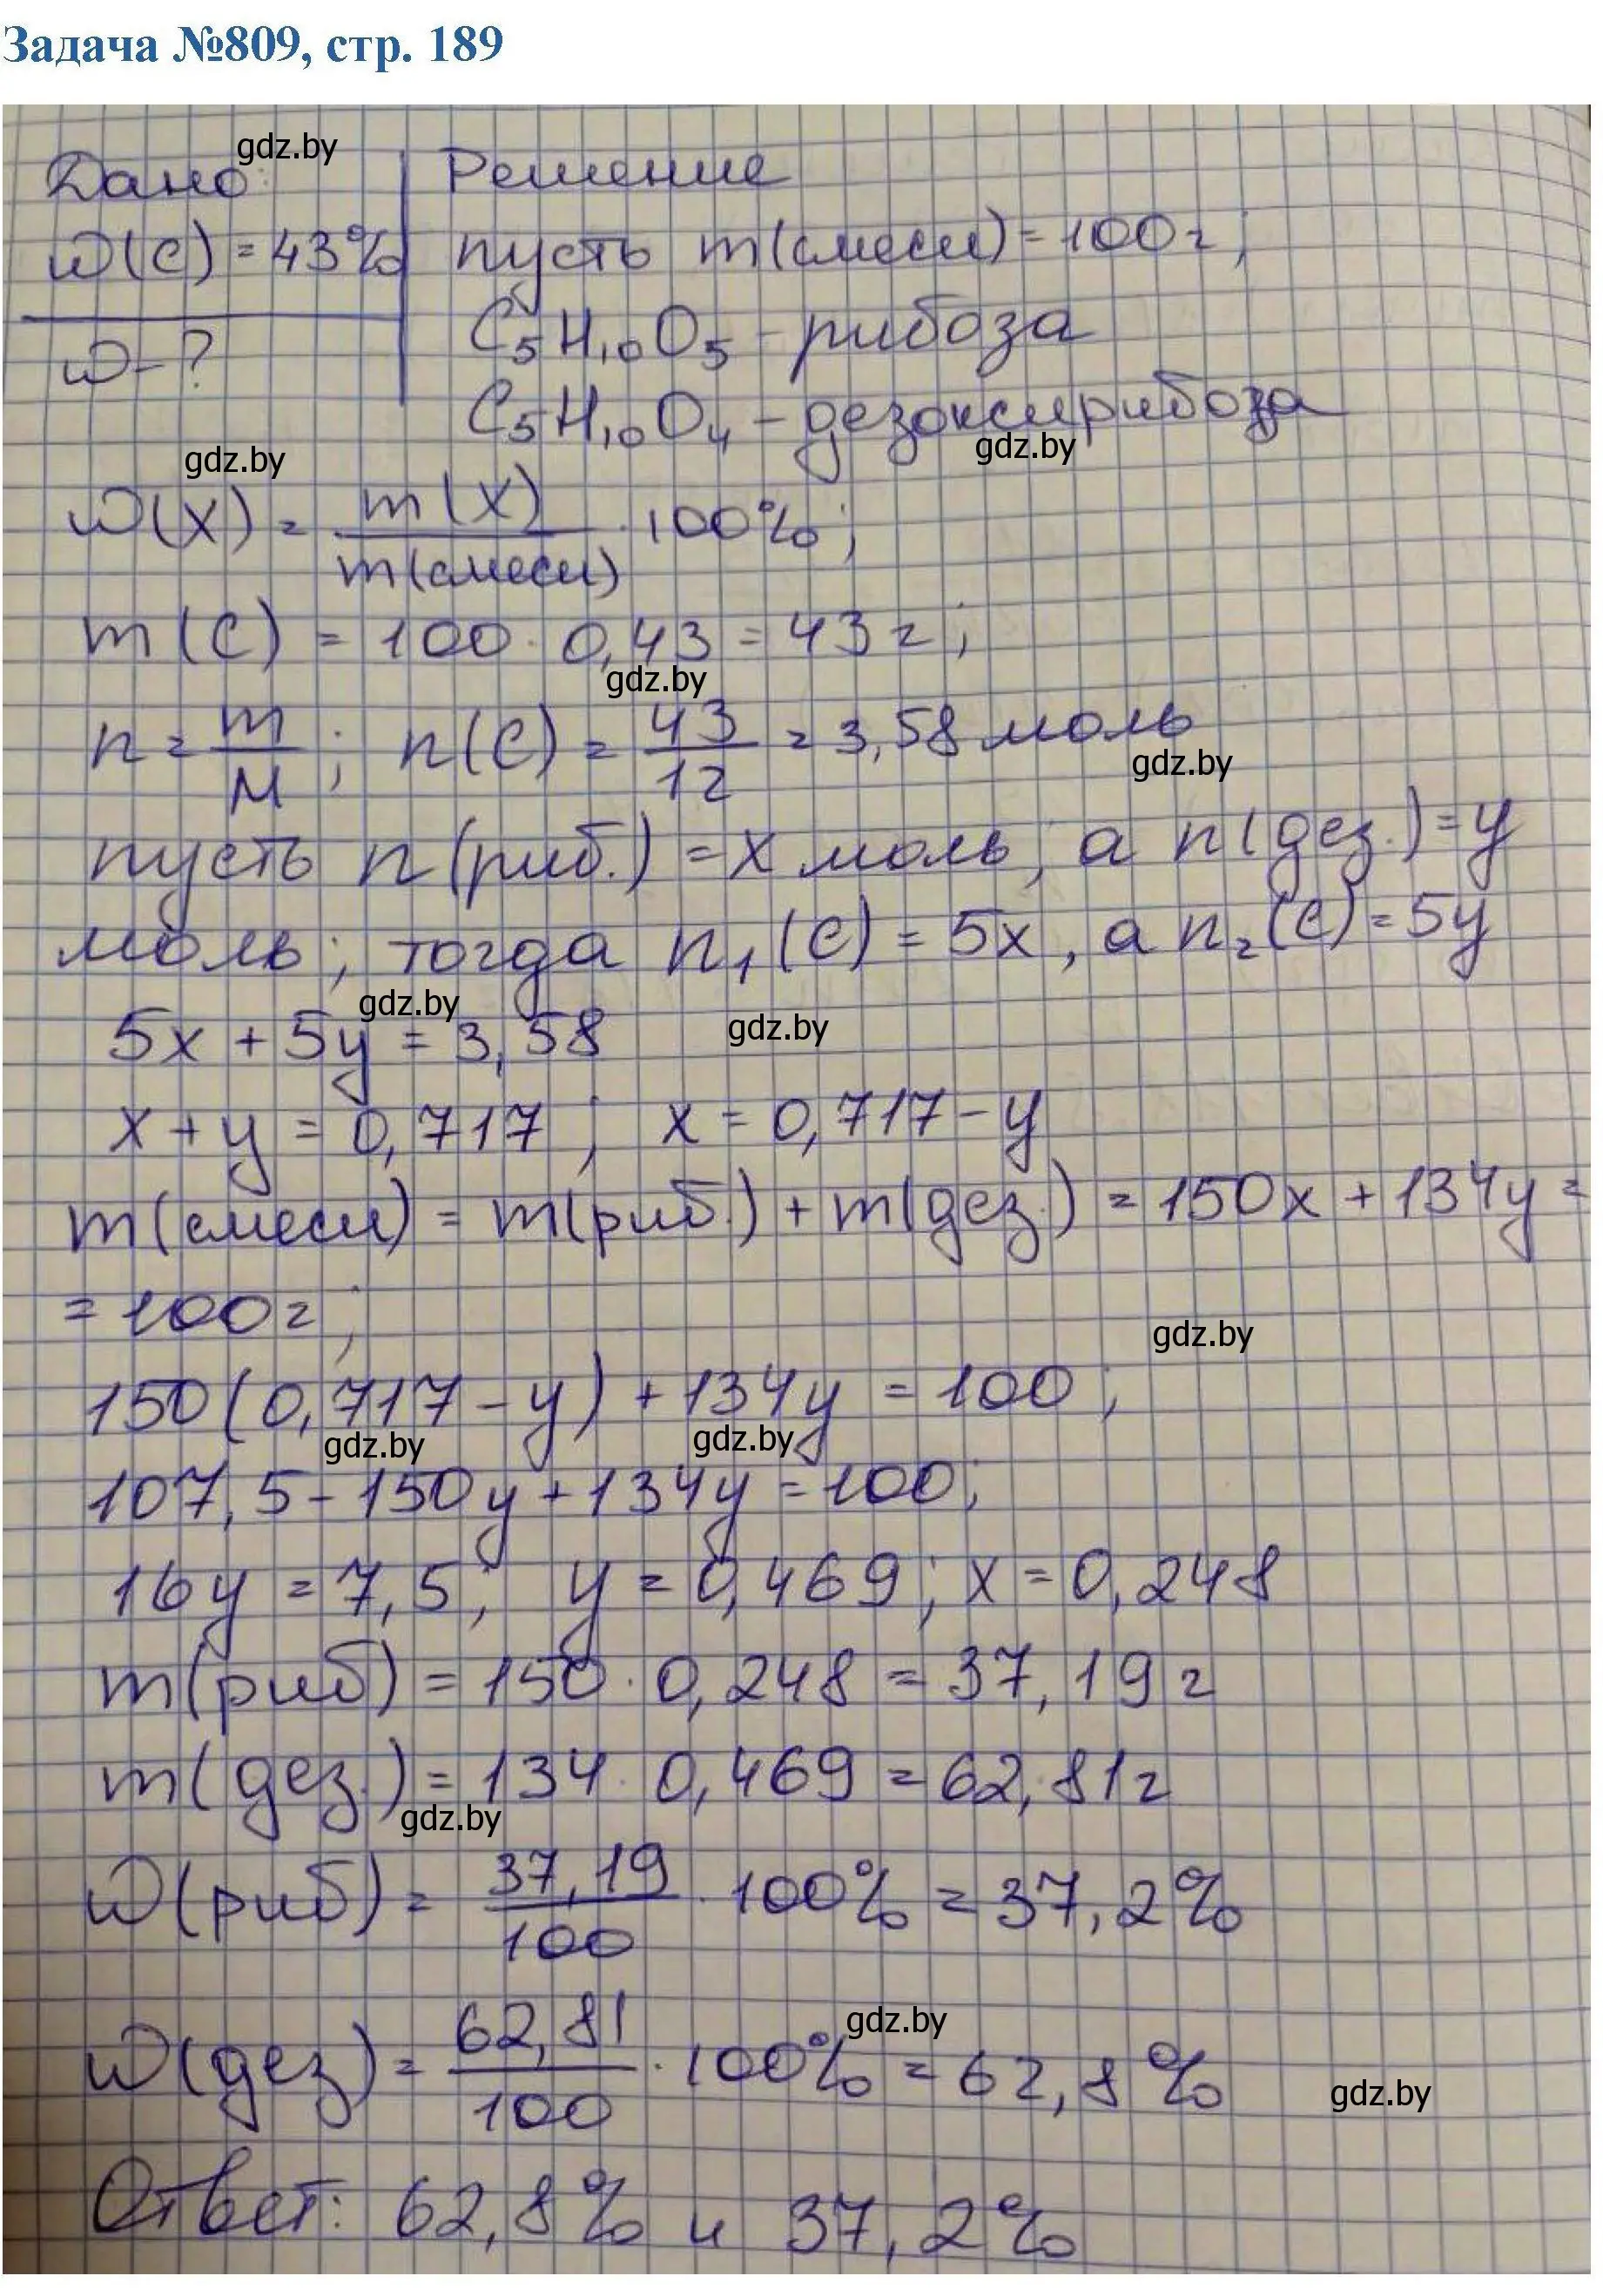 Задача №809, стр. 189
gdz.by
Дано: Решение
ω(C) = 43% пусть m(смеси) = 100г;
C₅H₁₀O₅ - рибоза
ω - ?
C₅H₁₀O₄ - дезоксирибоза
gdz.by gdz.by
ω(X) = m(X)/m(смеси) · 100%;
m(C) = 100 · 0,43 = 43г;
gdz.by
n = m/M; n(C) = 43/12 = 3,58 моль
gdz.by
пусть n(риб.) = x моль, а n(дез.) = y
моль; тогда n₁(C) = 5x, а n₂(C) = 5y
gdz.by gdz.by
5x + 5y = 3,58
x + y = 0,717; x = 0,717 - y
m(смеси) = m(риб.) + m(дез.) = 150x + 134y =
= 100г;
gdz.by
150(0,717 - y) + 134y = 100;
gdz.by gdz.by
107,5 - 150y + 134y = 100;
16y = 7,5; y = 0,469; x = 0,248
m(риб) = 150 · 0,248 = 37,19г
m(дез.) = 134 · 0,469 = 62,81г
gdz.by
ω(риб) = 37,19/100 · 100% = 37,2%
gdz.by
ω(дез) = 62,81/100 · 100% = 62,8%
gdz.by
Ответ: 62,8% и 37,2%